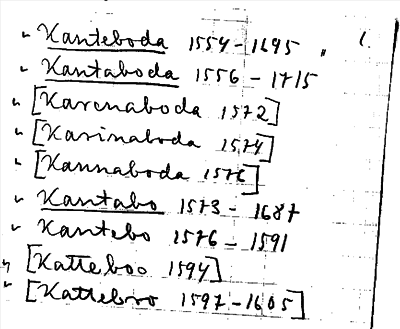 " Kanteboda 1554-1695 " 1.
" Kantaboda 1556 - 1715
" [Karenaboda 1572]
" [Karinaboda 1574]
" [Kannaboda 1576]
" Kantabo 1573 - 1687
" Kantebo 1576 - 1591
" [Katteboo 1594]
" [Kattebro 1597-1605]